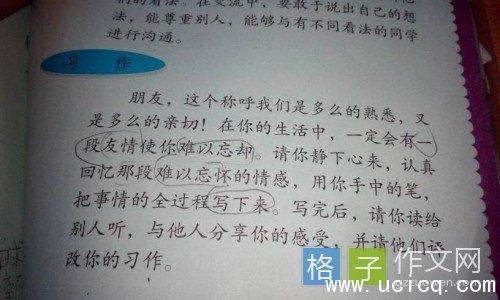 们的看法。在交流中，要敢于说出自己的想
法，能尊重别人，能够与有不同看法的同学
进行沟通。
习 作
朋友，这个称呼我们是多么的熟悉，又
是多么的亲切！在你的生活中，一定会有一
段友情使你难以忘却。请你静下心来，认真
回忆那段难以忘怀的情感，用你手中的笔，
把事情的全过程写下来。写完后，请你读给
别人听，与他人分享你的感受，并请他们评
改你的习作。
格子作文网
www.ucrcq.com